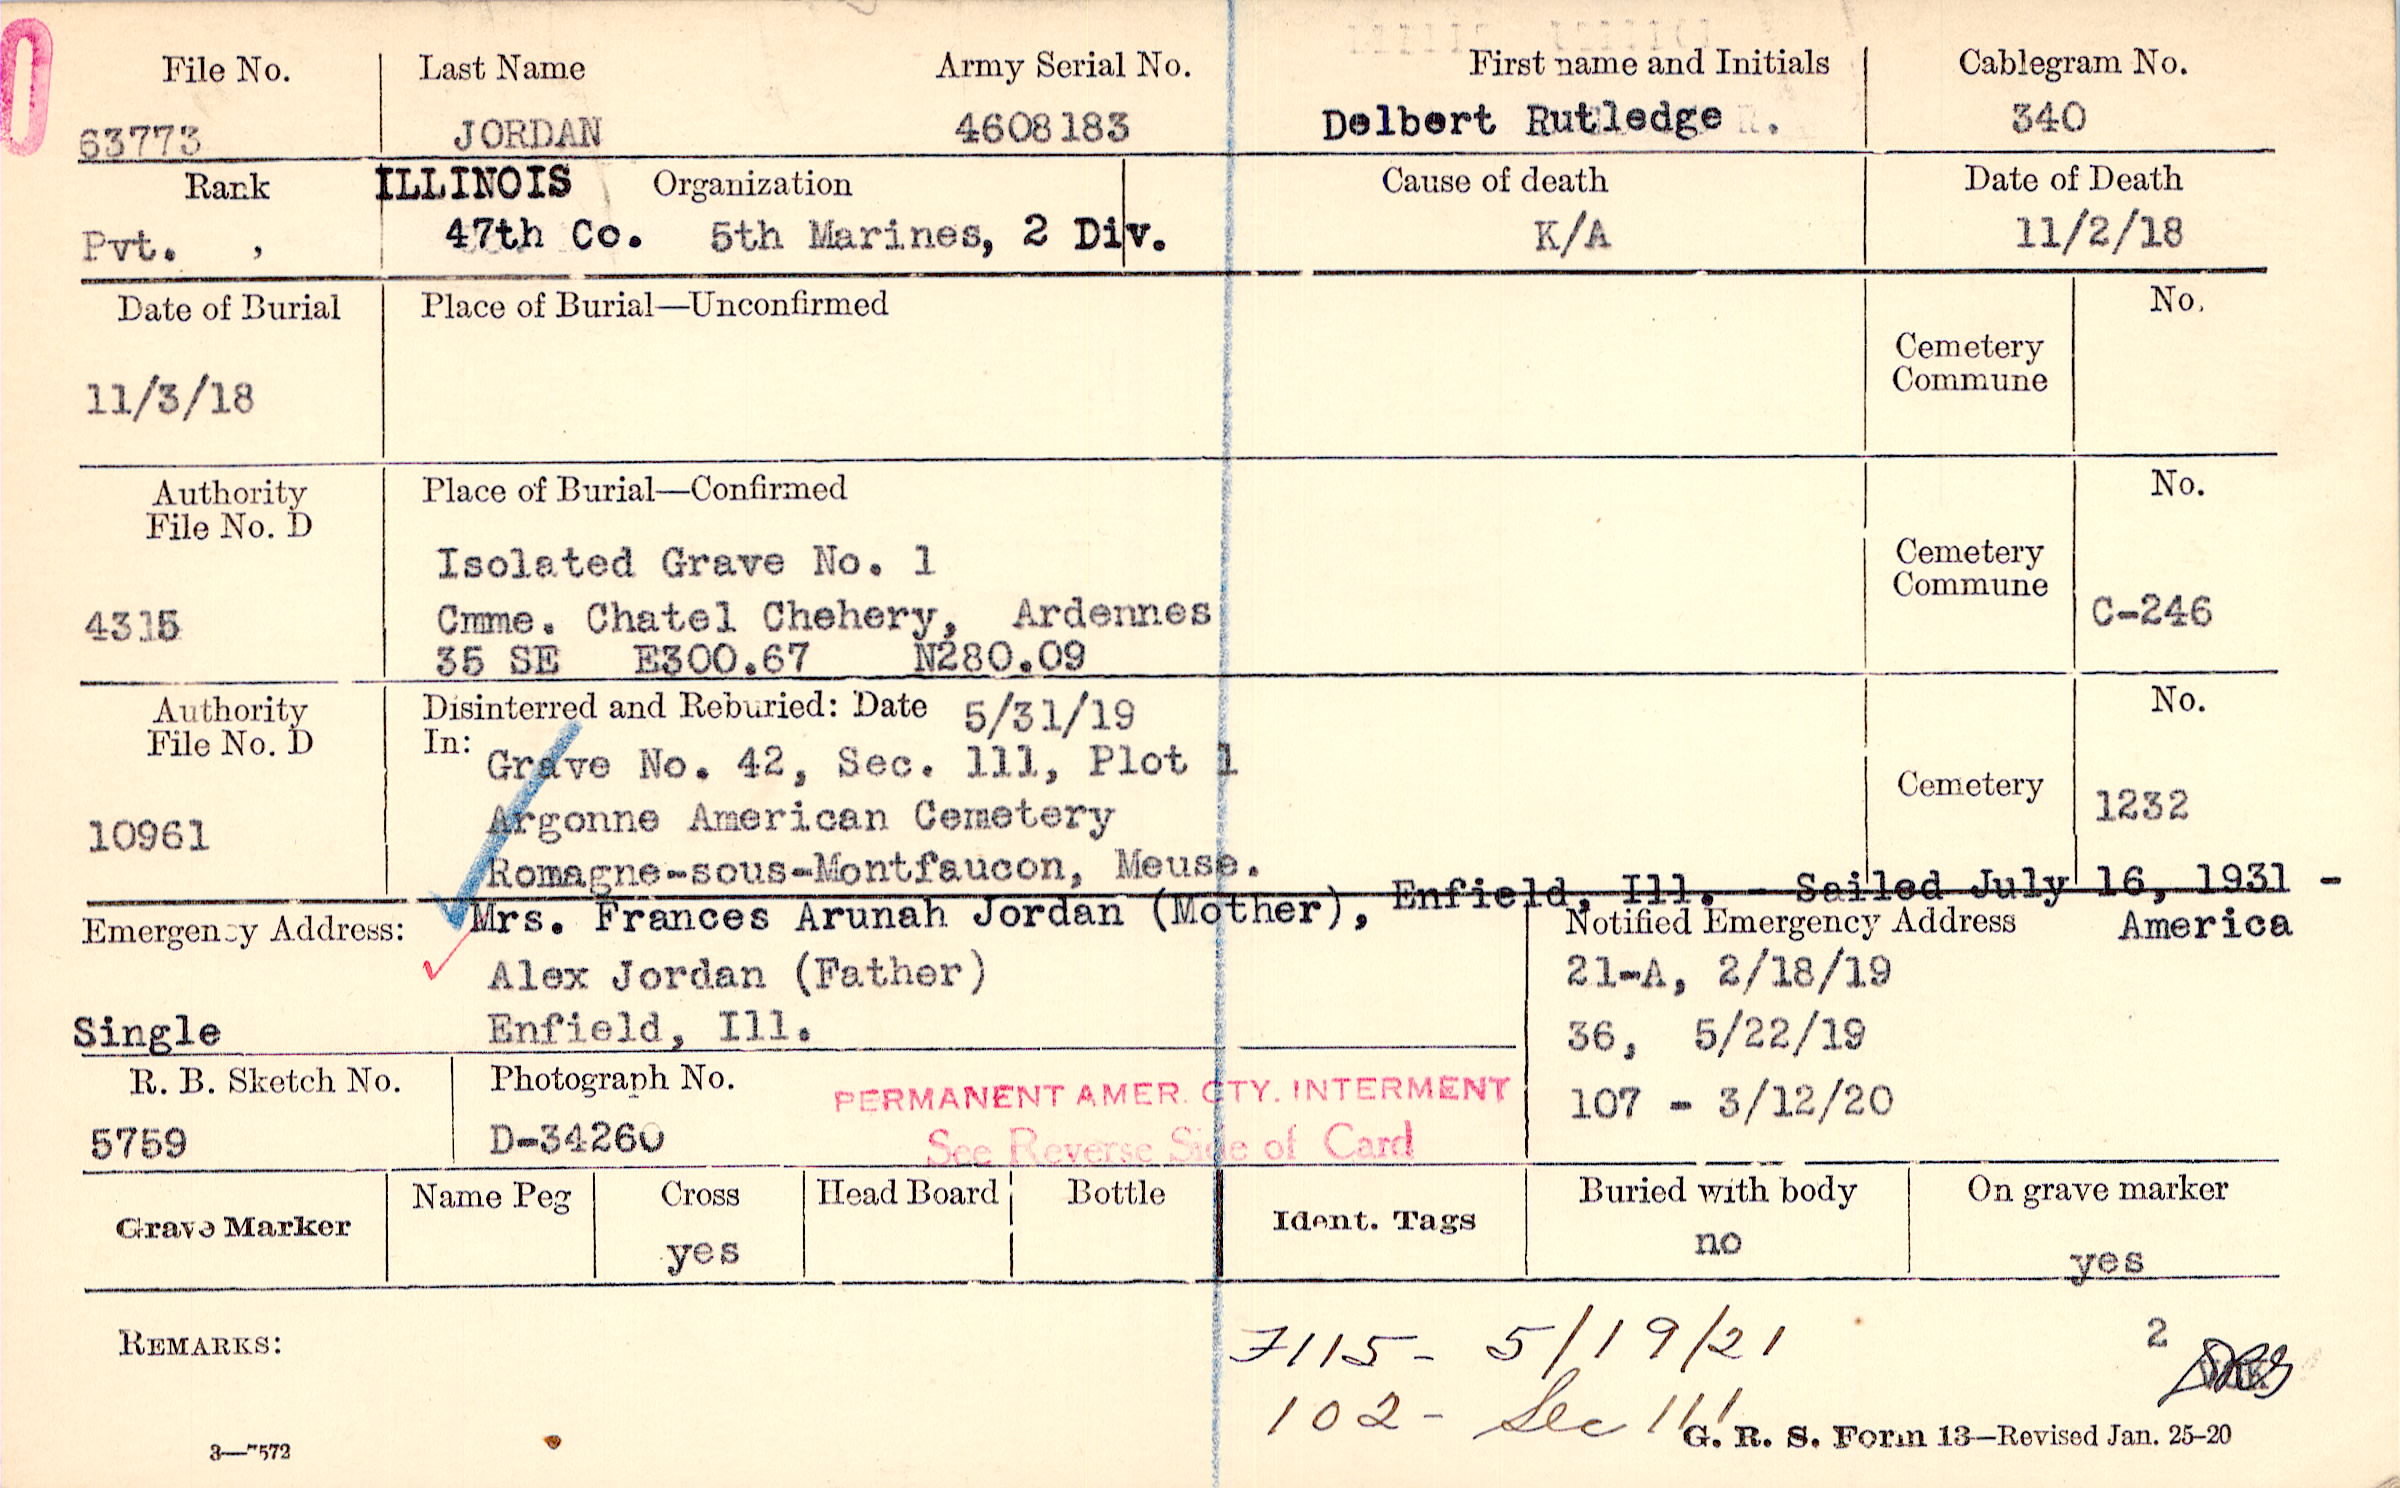 File No. Last Name Army Serial No. First name and Initials Cablegram No.
63773 JORDAN 4608183 Delbert Rutledge . 340
Rank ILLINOIS Organization Cause of death Date of Death
Pvt. , 47th Co. 5th Marines, 2 Div. K/A 11/2/18
Date of Burial Place of Burial—Unconfirmed No.
Cemetery
Commune
11/3/18
Authority Place of Burial—Confirmed No.
File No. D
Isolated Grave No. 1 Cemetery
Commune
4315 Cmme. Chatel Chehery, Ardennes C-246
35 SE E300.67 N280.09
Authority Disinterred and Reburied: Date 5/31/19 No.
File No. D In:
Grave No. 42, Sec. 111, Plot 1 Cemetery
10961 Argonne American Cemetery 1232
Romagne-sous-Montfaucon, Meuse.
Emergency Address: Mrs. Frances Arunah Jordan (Mother), Enfield, Ill. - Sailed July 16, 1931 -
Notified Emergency Address America
Alex Jordan (Father) 21-A, 2/18/19
Single Enfield, Ill. 36, 5/22/19
R. B. Sketch No. Photograph No. PERMANENT AMER. CTY. INTERMENT 107 - 3/12/20
5759 D-34260 See Reverse Side of Card
Grave Marker Name Peg Cross Head Board Bottle Ident. Tags Buried with body On grave marker
yes no yes
REMARKS: 7115- 5/19/21 2
102- Sec 111
3—7572 G. R. S. Form 13—Revised Jan. 25-20